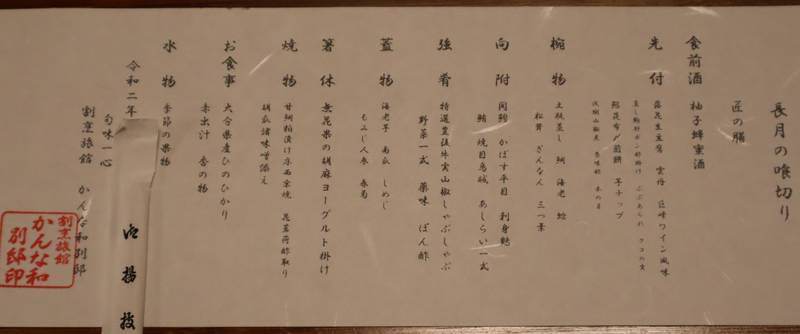 長月の喰切り
匠の膳
食前酒 柚子蜂蜜酒
先付 落花生豆腐 雲丹 巨峰ワイン風味
蒸し鮑肝ポン酢掛け ぶぶあられ クコの実
鮎昆布〆煎餅 芋チップ
椀物 土瓶蒸し 鱧 海老 蛤
松茸 ぎんなん 三つ葉
向附 関鯵 かぼす平目 刺身鮑
鮪 焼目烏賊 あしらい一式
強肴 特選豊後牛実山椒しゃぶしゃぶ
野菜一式 薬味 ぽん酢
蓋物 海老芋 南瓜 しめじ
もみじ人参 春菊
箸休 無花果の胡麻ヨーグルト掛け
焼物 甘鯛粕漬け
胡瓜諸味噌添え
お食事 大分県産ひのひかり
赤出汁 香の物
水物 季節の果物
令和二年
旬味一心
割烹旅館 かんな和別邸
割烹旅館
かんな和
別邸印
御楊枝